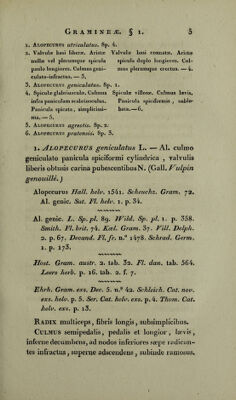 GRAMINEÆ. § 1. 5
1. ALOPECURUS utriculatus. Sp. 4.
2. Valvulæ basi liberæ. Aristæ Valvulæ basi connatæ. Aristæ
nullæ vel plerumque spicula spicula duplo longiores. Cul-
paulo longiores. Culmus geni- mus plerumque erectus. — 4.
culato-infractus. — 3.
3. ALOPECURUS geniculatus. Sp. 1.
4. Spiculæ glabriusculæ. Culmus Spiculæ villosæ. Culmus lævis,
infra paniculam scabriusculus. Panicula spiciformis, sublo-
Panicula spicata, simplicissi- bata.—6.
ma. — 5.
5. ALOPECURUS agrestis. Sp. 2.
6. ALOPECURUS pratensis. Sp. 3.
1. ALOPECURUS geniculatus L. — Al. culmo
geniculato panicula spiciformi cylindrica, valvulis
liberis obtusis carina pubescentibus N. (Gall. Vulpin
genouillé.)
Alopecurus Hall. helv. 1541. Scheuchz. Gram. 72.
Al. genic. Sut. Fl. helv. 1. p. 34.
Al. genic. L. Sp. pl. 89. Willd. Sp. pl. 1. p. 358.
Smith. Fl. brit. 74. Kœl. Gram. 37. Vill. Delph.
2. p. 67. Decand. Fl. fr. n.º 1478. Schrad. Germ.
1. p. 173.
Host. Gram. austr. 2. tab. 32. Fl. dan. tab. 564.
Leers herb. p. 16. tab. 2. f. 7.
Ehrh. Gram. exs. Dec. 5. n.º 42. Schleich. Cat. nov.
exs. helv. p. 5. Ser. Cat. helv. exs. p. 4. Thom. Cat.
helv. exs. p. 13
RADIX multiceps, fibris longis, subsimplicibus.
CULMUS semipedalis, pedalis et longior, lævis,
inferne decumbens, ad nodos inferiores sæpe radican-
tes infractus, superne adscendens, subinde ramosus.